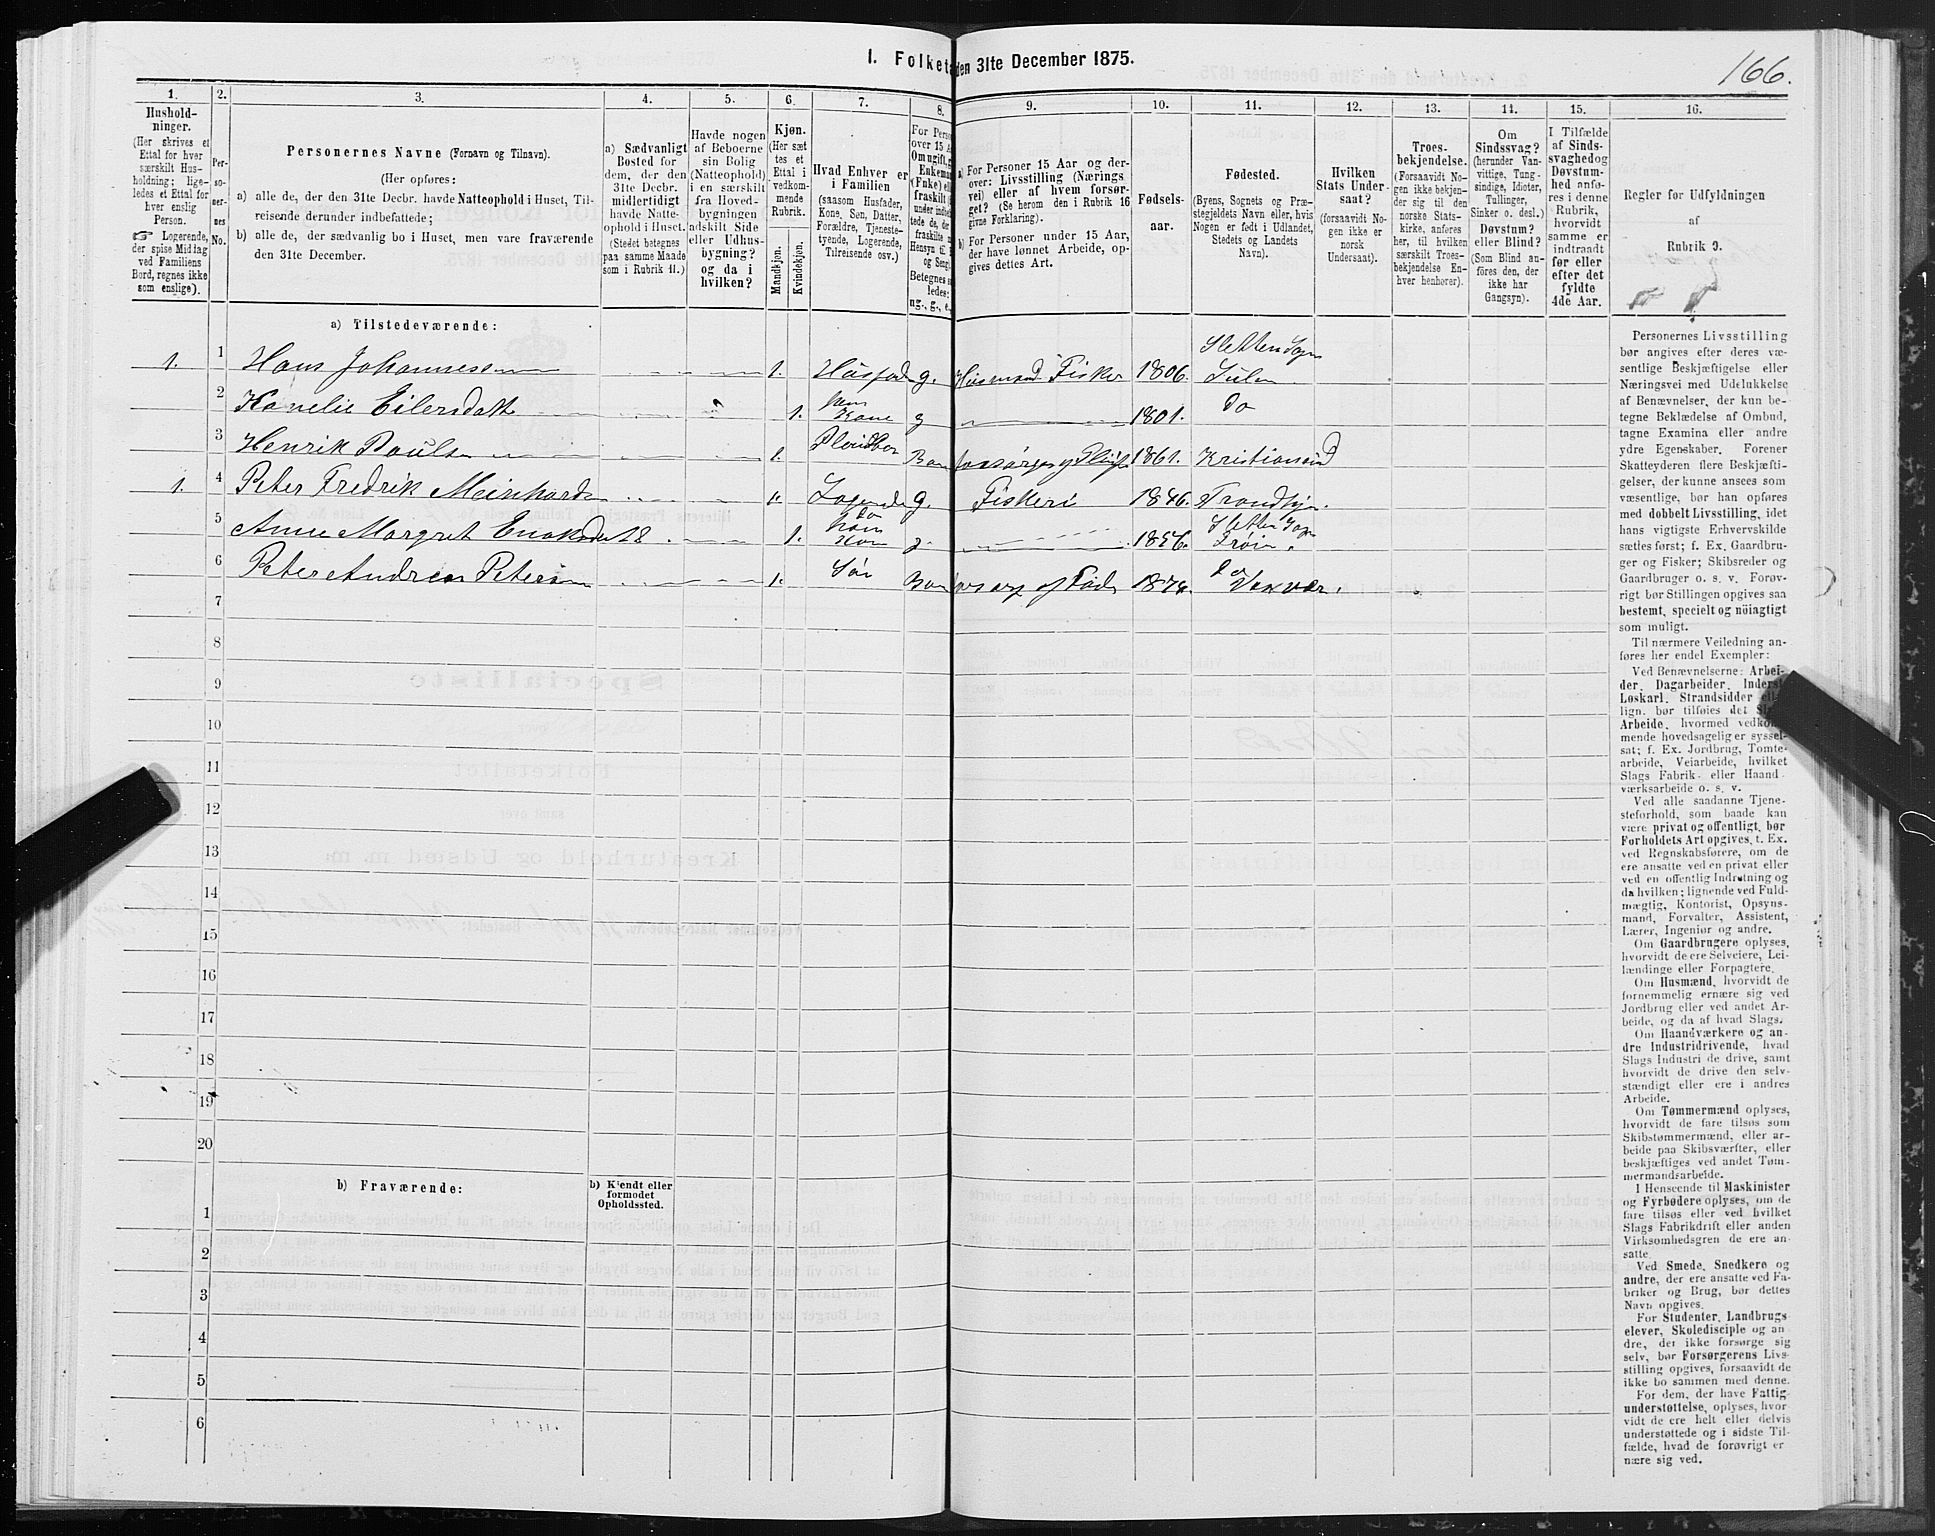 I. Folketa den 31te December 1875.
166.
1.
2.
3.
4.
5.
6.
7.
8.
9.
10.
11.
12.
13.
14.
15.
16.
Hushold-
ninger.
(Her skrives et
Ettal for hver
særskilt Hus-
holdning; lige-
ledes et Ettal for
hver enslig
Person.
☞ Logerende,
der spise Middag
ved Familiens
Bord, regnes ikke
som enslige).
Per-
so-
ner-
nes
No.
Personernes Navne (Fornavn og Tilnavn).
(Her opføres:
a) alle de, der den 31te Decbr. havde Natteophold i Huset, Til-
reisende derunder indbefattede;
b) alle de, der sædvanlig bo i Huset, men vare fraværende
den 31te December.
a) Sædvanligt
Bosted for
dem, der den
31te Decbr.
midlertidigt
havde Natte-
ophold i Huset.
(Stedet betegnes
paa samme Maade
som i Rubrik 11.)
Havde nogen
af Beboerne
sin Bolig
(Natteophold)
i en særskilt
fra Hoved-
bygningen
adskilt Side
eller Udhus-
bygning?
og da i
hvilken?
Kjøn.
(Her sæt
tes et
Ettal i
vedkom-
mende
Rubrik.
Mandkjøn.
Kvindekjøn.
Hvad Enhver er
i Familien
(saasom Husfader,
Kone, Søn, Datter,
Forældre, Tjeneste-
tyende, Logerende,
Tilreisende osv.)
For Perso
over 15 A
Om ugift, g
Enkeman
(Enke) ell
fraskilt
under indbe
tede de, der
fraskilte m
Hensyn til
og Seng
Betegnes s
ledes:
ug., g., e.,
a) For Personer 15 Aar og der-
over: Livsstilling (Nærings
vei) eller af hvem forsør-
get? (Se herom den i Rubrik 16
givne Forklaring).
b) For Personer under 15 Aar,
der have lønnet Arbeide, op-
gives dettes Art.
Fødsels-
aar.
Fødested.
(Byens, Sognets og Præ-
stegjeldets Navn eller, hvis
Nogen er født i Udlandet,
Stedets og Landets
Navn).
Hvilken
Stats Under-
saat?
(forsaavidt No-
gen ikke er
norsk
Undersaat).
Troes-
bekjendelse.
(Forsaavidt No-
gen ikke bekjen-
der sig til den
norske Stats-
kirke, anføres
her, til hvilken
særskilt Troes-
bekjendelse En-
hver henhører).
Om
Sindssvag?
(herunder Van-
vittige, Tung-
sindige, Idioter,
Tullinger,
Sinker o. desl.)
Døvstum?
eller Blind?
(Som Blind an-
føres den, der
ikke har
Gangsyn).
I Tilfælde
af Sinds-
svaghedog
Døvstum-
hed anfø-
res i denne
Rubrik,
hvorvidt
samme er
indtraadt
før eller
efter det
fyldte
4de Aar.
Regler for Udfyldningen
af
Rubrik 9.
a) Tilstedeværende:
1. 1 Hans Johannessen 1. g. Husmand Fisker 1806. Sletten Sogn
2 Eilersdatt 1. hans Kone g 1801. Do
3 Henrik Poulsen 1. 1861. Kristiansund
1. 4 Peter Fredrik g. Fiskeri
5 Anne Margret 1. Kone
6 Peter Andreas Petersen 1. Søn
7
8
9
10
11
12
13
14
15
16
17
18
19
20
b) Fraværende:
b) Kjendt eller
formodet
Opholdssted.
1
2
3
4
5
6
Personernes Livsstilling
bør angives efter deres væ-
sentlige Beskjæftigelse eller
Næringsvei med Udelukkelse
af Benævnelser, der kun be-
tegne Beklædelse af Ombud,
tagne Examina eller andre
ydre Egenskaber. Forener
Skatteyderen flere Beskjæfti-
gelser, der kunne ansees som
væsentlige, bør han opføres
med dobbelt Livsstilling, idet
hans vigtigste Erhvervskilde
sættes først; f. Ex. Gaardbru-
ger og Fisker; Skibsreder og
Gaardbruger o. s. v. Forøv-
rigt bør Stillingen opgives saa
bestemt, specielt og nöiagtigt
som muligt.
Til nærmere Veiledning an-
føres her endel Exempler:
Ved Benævnelserne: Arbei-
der, Dagarbeider, Inderst
Løskarl, Strandsidder
lign. bør tilføies det
Arbeide, hvormed
mende hovedsagelig er syssel-
sat; f. Ex. Jordbrug, Tomte-
arbeide, Veiarbeide, hvilket
Slags Fabrik- eller Haand-
værksarbeide o. s. v.
Ved alle saadanne Tjene-
steforhold, som baade kan
være privat og offentligt, bør
Forholdets Art opgives, t. Ex.
ved Regnskabsførere, om de
ere ansatte ved en privat eller
ved en offentlig Indretning og
da hvilken; lignende ved Fuld-
mægtig, Kontorist, Opsyns-
mand, Forvalter, Assistent,
Lærer, Ingeniør og andre.
Om Gaardbrugere oplyses,
hvorvidt de ere Selveiere, Lei-
lændinge eller Forpagtere.
Om Husmænd, hvorvidt de
fornemmelig ernære sig ved
Jordbrug eller ved andet Ar-
beide, og da af hvad Slags.
Om Haandværkere og an-
dre Industridrivende, hvad
Slags Industri de drive, samt
hvorvidt de drive den selv-
stændigt eller ere i andres
Arbeide.
Om Tømmermænd oplyses,
hvorvidt de fare tilsøs som
Skibstømmermænd, eller ar-
beide paa Skibsværfter, eller
beskjæftiges ved andet Tøm-
mermandsarbeide.
I Henseende til Maskinister
og Fyrbødere oplyses, om de
fare tilsøs eller ved hvilket
Slags Fabrikdrift eller anden
Virksomhedsgren de ere an-
satte.
Ved Smede, Snedkere og
andre, der ere ansatte ved Fa-
briker og Brug, bør dettes
Navn opgives.
For Studenter, Landbrugs
elever, Skoledisciple og an
dre, der ikke forsørge sig
selv, bør Forsørgerens Livs-
stilling opgives, forsaavidt de
ikke bo sammen med denne.
For dem, der have Fattig-
understøttelse, oplyses, hvor-
vidt de ere helt eller delvis
understøttede og i sidste Til-
fælde, hvad de forøvrigt er
nære sig ved.